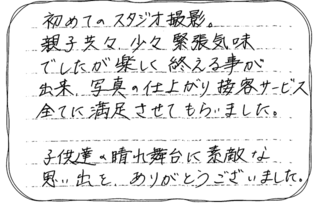 初めてのスタジオ撮影。
親子共々、少々緊張気味
でしたが楽しく終える事が
出来、写真の仕上がり接客サービス
全てに満足させてもらいました。
子供達の晴れ舞台に素敵な
思い出を、ありがとうございました。